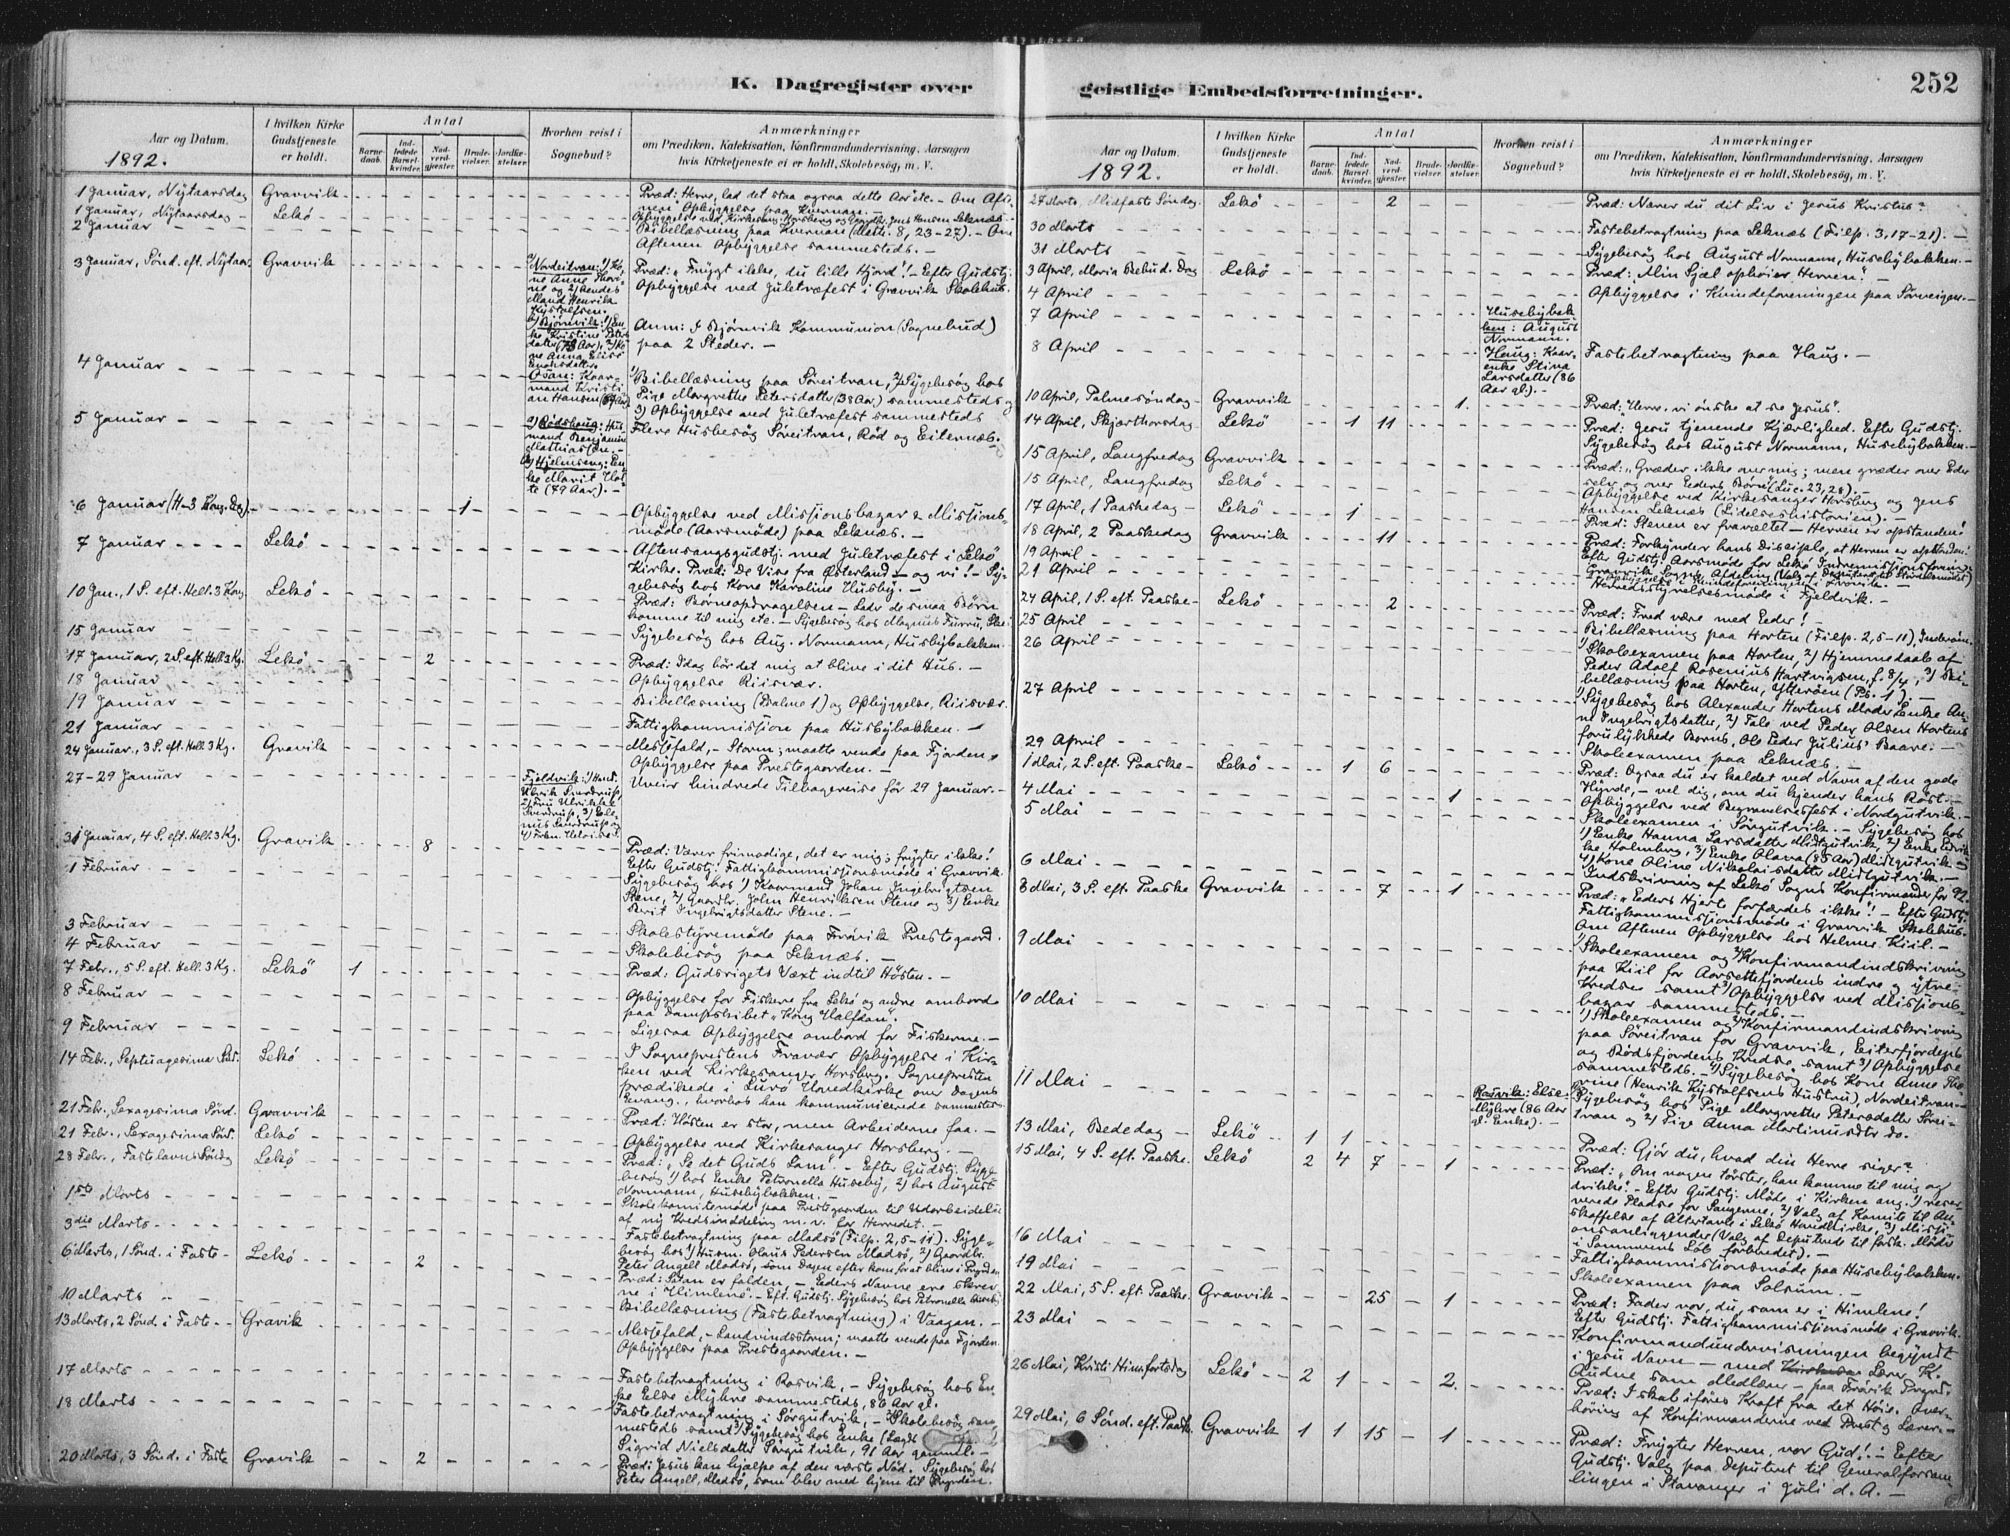 K. Dagregister over geistlige Embedsforretninger.
252
Aar og Datum.
1892.
I hvilken Kirke
Gudstjeneste
er holdt.
Antal
Barne-
daab.
Ind-
ledede
Barsel-
kvinder.
Nad-
verd-
gjester.
Brude-
vielser.
Jordfæ-
stelser.
Hvorhen reist i
Sognebud?
Anmærkninger
om Prædiken, Katekisation, Konfirmandundervisning, Aarsagen
hvis Kirketjeneste ei er holdt, Skolebesøg, m. V.
1 Januar, Nytaarsdag Gravvik Præd: Herre, lad det staa ogsaa dette Aar etc. - Om Aft-
1 Januar, Nytaarsdag Lekö Opbyggelse ved Kirkesang. Horsberg og Gaardbr. Jens Hansen Leknæs
2 Januar Bibellæsning paa Kvernan (Matth. 8, 23-27). - Om
Aftenen Opbyggelse sammesteds. -
3 Januar, Sönd. eft. Nytaar Gravvik Præd: "Frygt ikke, du lille Hjord"! - Efter Gudstj.
Opbyggelse ved Juletræfest i Gravvik Skolehus.
Anm: I Bjørnvik Kommunion (Sognebud)
paa 2 Steder. -
4 Januar Bibellæsning paa Søreitran, 2) Sygebesøg hos
Pige Margrethe Petersdatter (38 Aar) sammesteds og
3) Opbyggelse ved Juletræfest sammesteds
5 Januar Flere Husbesøg Søreitran, Rød og Eiternæs.
6 Januar (H-3 Kong. Dag) 1 Opbyggelse ved Missionsbazar & Missions-
møde (Aarsmøde) paa Leknæs. -
7 Januar Lekö Aftensangsgudstj. med Juletræfest i Lekö
Kirke. Præd: De Vise fra Østerland - og vi! - Sy-
gebesøg hos Kone Karoline Husby. -
10 Jan., 1 S. eft. Hell. 3 Kong. Lekö Præd: Børneopdragelsen - Lader de smaa Børn
komme til mig etc. - Sygebesøg hos Magnus Furru, Skei
15 Januar Sygebesøg hos Aug. Normann, Husbybakken.
17 Januar, 2 S. eft. Hell. 3 Kg. Lekö 2 Præd: Idag bør det mig at blive i dit Hus. -
18 Januar Opbyggelse Riisvær.
19 Januar Bibellæsning (Psalme 1) og Opbyggelse, Riisvær.
21 Januar Fattigkommission paa Husbybakken. -
24 Januar, 3 S. eft. Hell. 3 Kg. Gravik Messefald, - Storm; maatte vende paa Fjorden.
Opbyggelse paa Prestegaarden. -
27-29 Januar Uveir hindrede Tilbagereise før 29 Januar. -
31 Januar, 4 S. eft. Hell. 3 Kg. Gravik 8 Præd: Værer frimodige, det er mig; frygter ikke!
Efter Gudstj. Fattigkommissionsmøde i Gravvik.
1 Februar Sygebesøg hos 1) Kaarmand Johan Ingebrigtsen
Stene, 2) Gaardbr. John Henriksen Stene og 3) Enke
Berit Ingebrigtsdatter Stene. -
3 Februar Skolestyremøde paa Frøvik Prestegaard.
4 Februar Skolebesøg paa Leknæs. -
7 Febr., 5 S. eft. Hell. 3 Kg. Lekö 1 Præd: Gudsrigets Væxt indtil Høsten. -
8 Februar Opbyggelse for Fiskerne fra Lekö og andre ombord
paa Dampskibet "Kong Halfdan".
9 Februar Ligesaa Opbyggelse ombord for Fiskerne. -
14 Febr., Septuagesima Søn. Lekö I Sogneprestens Fravær Opbyggelse i Kir-
ken ved Kirkesanger Horsberg. Sognepresten
prædikede i Lurø Hovedkirke over Dagens
Evang., hvorhos han kommunicerede sammesteds.
21 Febr., Sexagesima Sønd. Gravvik Præd: Høsten er stor, men Arbeiderne faa. -
21 Febr., Sexagesima Sønd. Lekö Opbyggelse ved Kirkesanger Horsberg. -
28 Febr., Fastelavns Søndag Lekö Præd: "Se det Guds Lam". - Efter Gudstj. Syge-
besøg 1) hos Enke Petronella Huseby, 2) hos August
Normann, Husebybakken. -
1ste Marts Skolekomitemøde paa Prestegaarden til Udarbeidelse
af ny Kredsinddeling m. v. for Herredet. -
3die Marts Fastebetragtning paa Madsø (Filip. 2, 5-11). Syge-
besøg hos 1) Husm. Olaus Pedersen Madsø, 2) Gaardbr.
Peter Angell Madsø, som Dagen efter kom for at blive i Prgrden.
6 Marts, 1 Sönd. i Faste Lekö 2 Præd: Satan er falden, - Eders Navne ere skrev-
ne i Himlene". - Eft. Gudstj. Sygebesøg hos Petronella Huseby
10 Marts Bibellæsning (Fastebetragtning) i Vaagan. -
13 Marts, 2 Sönd. i Faste Gravik Messefald, - Landvindsstorm; maatte vende paa Fjorden.
Opbyggelse paa Prestegaarden. -
17 Marts Fastebetragtning i Rosvik, - Sygebesøg hos En-
ke Else Myhre sammesteds, 86 Aar gl.
18 Marts Fastebetragtning i Sørgutvik, - 2) Skolebesøg sam-
mesteds samt 3) Sygebesøg hos Enke (Lægds
Sigrid Nielsdatter Sørgutvik, 91 Aar gammel. -
20 Marts, 3 Sönd. i Faste Gravik 2 Præd: Jesus kan hjælpe af den værste Nød. Sygebesøg hos
Peter Angell Madsø, som blev med hjem til Prgrden.
Nordeitran: 1) Ko-
ne Anne Thori-
ne og 2) hendes
Mand Henrik
Kystolfsen.
b) Bjørnvik: 1) En-
ke Kristine Peters-
datter (78 Aar), 2) Ko-
ne Anna Elise
Enoksdatter
Osan: Kaar-
mand Kristi-
an Hansen
a) Rødshaug: Hus-
mand Benjamin
Mathiassen. -
b) Hjelmseng: En-
ke Marit Hol-
te (79 Aar). -
Fjeldvik: 1) Hand.
Ulrik Sverdrup,
2) Fru Ulrikke
Sverdrup,
Aar og Datum.
1892.
I hvilken Kirke
Gudstjeneste
er holdt.
Antal
Barne-
daab.
Ind-
ledede
Barsel-
kvinder.
Nad-
verd-
gjester.
Brude-
vielser.
Jordfæ-
stelser.
Hvorhen reist i
Sognebud?
Anmærkninger
om Prædiken, Katekisation, Konfirmandundervisning, Aarsagen
hvis Kirketjeneste ei er holdt, Skolebesøg, m. V.
27 Marts, Midfaste Söndag Lekö 2 Præd: Naver du dit Liv i Jesus Kristus?
30 Marts Fastebetragtning paa Leknæs (Filip. 3, 17-21). -
31 Marts Sygebesøg hos August Normann, Husebybakken. -
3 April, Maria Bebud. Dag Lekö Præd: "Min Sjæl ophøier Herren". -
4 April Opbyggelse i Kvindeforeningen paa Sørveigen. -
7 April Husebybak-
ken: August
Normann.
8 April Haug: Kaar-
enke Stina
Larsdatter (86
Aar gl.). -
Fastebetragtning paa Haug. -
10 April, Palmesöndag Gravvik 1. Præd: "Herre, vi ønske at se Jesus".
14 April, Skjærthorsdag Lekö 1 11 Præd: Jesu tjenende Kjærlighed. Efter Gudstj.
Sygebesøg hos August Normann, Husebybakken. -
15 April, Langfredag Gravvik Præd: "Græder ikke over mig; men græder over Eder
selv og over Eders Børn" (Luc. 23, 28). -
15 April, Langfredag Lekö Opbyggelse ved Kirkesanger Horsberg og Jens
Hansen Leknæs (Lidelseshistorien). -
17 April, 1 Paaskedag Lekö 1 Præd: Stenen er fravæltet - Herren er opstanden!
18 April, 2 Paaskedag Gravvik 11 Præd: Forkynder hans Disciple, at Herren er opstanden.
Efter Gudstj. Aarsmøde for Lekö Indremissionsforening
19 April
21 April Herredsstyrelsesmøde i Fjeldvik. -
24 April, 1 S. eft. Paaske Lekö 2 Præd: Fred være med Eder! -
25 April Bibellæsning paa Horten (Filip. 2, 5-11), Inderøen.
26 April 1) Skoleexamen paa Horten, 2) Hjemmedaab af
Peder Adolf Rosenius Hartvigsen, f. 8/4, 3) Bi-
bellæsning paa Horten, Ytterøen (Ps. 1). -
27 April 1) Sygebesøg hos Alexander Hortens Moder Enke An-
ne Ingebrigtsdatter, 2) Tale ved Peder Olsen Hortens
forulykkede Barns, Ole Peder Julius' Baare. -
29 April Skoleexamen paa Leknæs. -
1 Mai, 2 S. eft. Paaske Lekö 1 6 Præd: Ogsaa du er kaldet ved Navn af den gode
Hyrde, - vel dig, om du kjender hans Røst. -
4 Mai 1 Opbyggelse ved Begravelsesfest i Nordgutvik. -
5 Mai Skoleexamen i Sørgutvik. - Sygebesøg hos
1) Enke Hanna Larsdatter Midtgutvik, 2) Enke Edvik-
ke Holmberg, 3) Enke Olava (85 Aar) Midtgutvik og
4) Kone Oline Nikolaisdatter Midtgutvik. -
6 Mai Indskrivning af Lekö Sogns Konfirmander for 92.
8 Mai, 3 S. eft. Paaske Gravvik 7 1 Præd: "Eders Hjerte forfærdes ikke"! - Efter Gudstj.
Fattigkommissionsmøde i Gravvik Skolehus.
Om Aftenen Opbyggelse hos Helmer Kiil. -
9 Mai 1) Skoleexamen og 2) Konfirmandindskrivning
paa Kiil for Aarsetfjordens indre og ytre
Kredse samt 3) Opbyggelse ved Missions-
bazar sammesteds. -
10 Mai 1) Skoleexamen og 2) Konfirmandindskrivning
paa Søreitran for Gravvik, Eiterfjordens
og Rødsfjordens Kredse samt 3) Opbyggelse
sammesteds. - 4) Sygebesøg hos Kone Anne Tho-
rine (Henrik Kystolfsens Hustru), Nordeitran. -
11 Mai Rosvik: Else
Myhre (86 Aar
gl. Enke). -
Sygebesøg hos 1) Pige Margrethe Petersdatter Sørei-
tran og 2) Pige Anna Martinusdtr do.
13 Mai, Bededag Lekö 1 1 Præd: Gjør du, hvad din Herre siger?
15 Mai, 4 S. eft. Paaske. Lekö 2 4 7 1 Præd: "Om nogen tørster, han komme til mig og
drikke". - Efter Gudstj. Møde i Kirken ang. 1) reser-
verede Pladse for Sangerne, 2) Valg af Komite til An-
skaffelse af Altertavle i Lekö Hovedkirke, 3) Missi-
onsanliggender (Valg af Deputerede til forsk. Møder
i Sommerens Løb forberedet). -
16 Mai Fattigkommissionsmøde paa Husebybakken.
19 Mai Skoleexamen paa Solsum. -
22 Mai, 5 S. eft. Paaske Gravvik 25 1 Præd: Fader vor, du, som er i Himlene!
Efter Gudstj. Fattigkommissionsmøde i Gravvik.
23 Mai Konfirmandundervisningen begyndt
i Jesu Navn - med Lærer K.
Audne som Medlærer - paa Frøvik Prgrd.
26 Mai, Kristi Himmelfartsdag Lekö 2 1 2. Præd: I skal iføres Kraft fra det Høie. Over-
høring af Konfirmanderne ved Prest og Lærer. -
29 Mai, 6 Sönd. eft. Paaske Gravvik 1 1 15 1 Præd: Frygter Herren, vor Gud! - Efter
Gudstj. Valg paa Deputent til Generalforsam-
lingen i Stavanger i Juli d. A. -